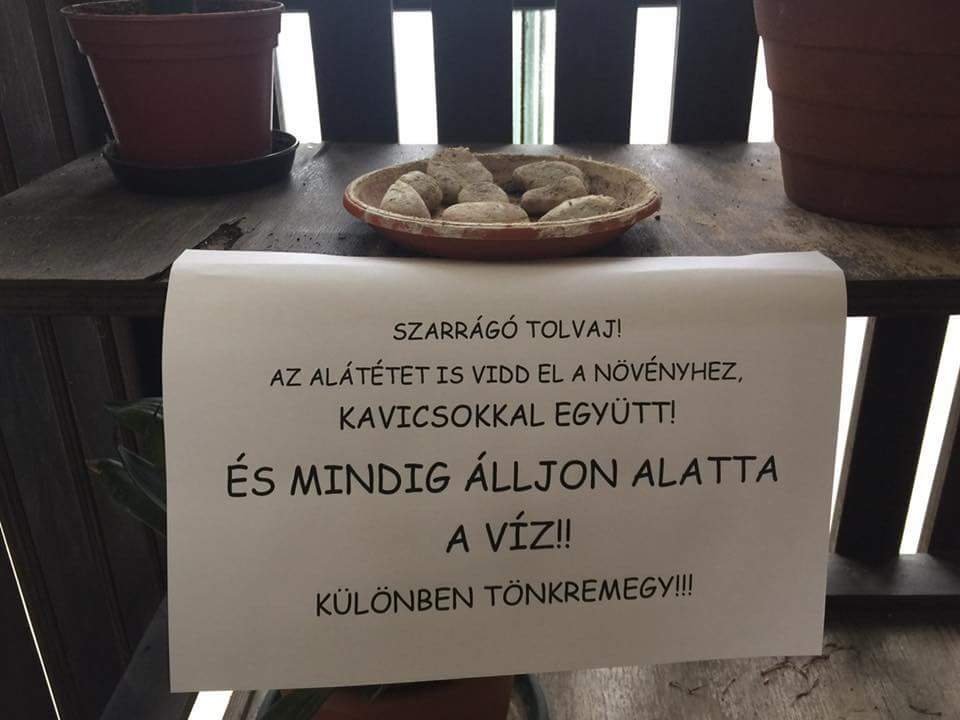 SZARRÁGÓ TOLVAJ!
AZ ALÁTÉTET IS VIDD EL A NÖVÉNYHEZ,
KAVICSOKKAL EGYÜTT!
ÉS MINDIG ÁLLJON ALATTA
A VÍZ!!
KÜLÖNBEN TÖNKREMEGY!!!